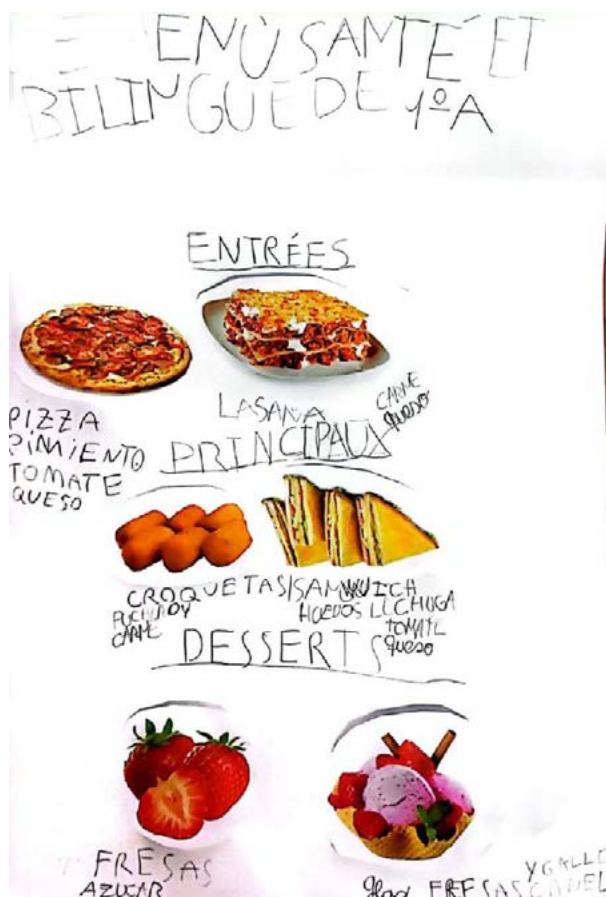 ENÙ SANTÉ ET
BILINGUE DE 1ºA
ENTRÉES
PIZZA
PIMIENTO
TOMATE
QUESO
LASAÑA
CARNE
QUESO
PRINCIPAUX
CROQUETAS/SANWUICH
CARNE
HUEVOS LECHUGA
TOMATE
QUESO
DESSERTS
FRESAS
AZUCAR
FRESAS
Y GALLE
CANEL